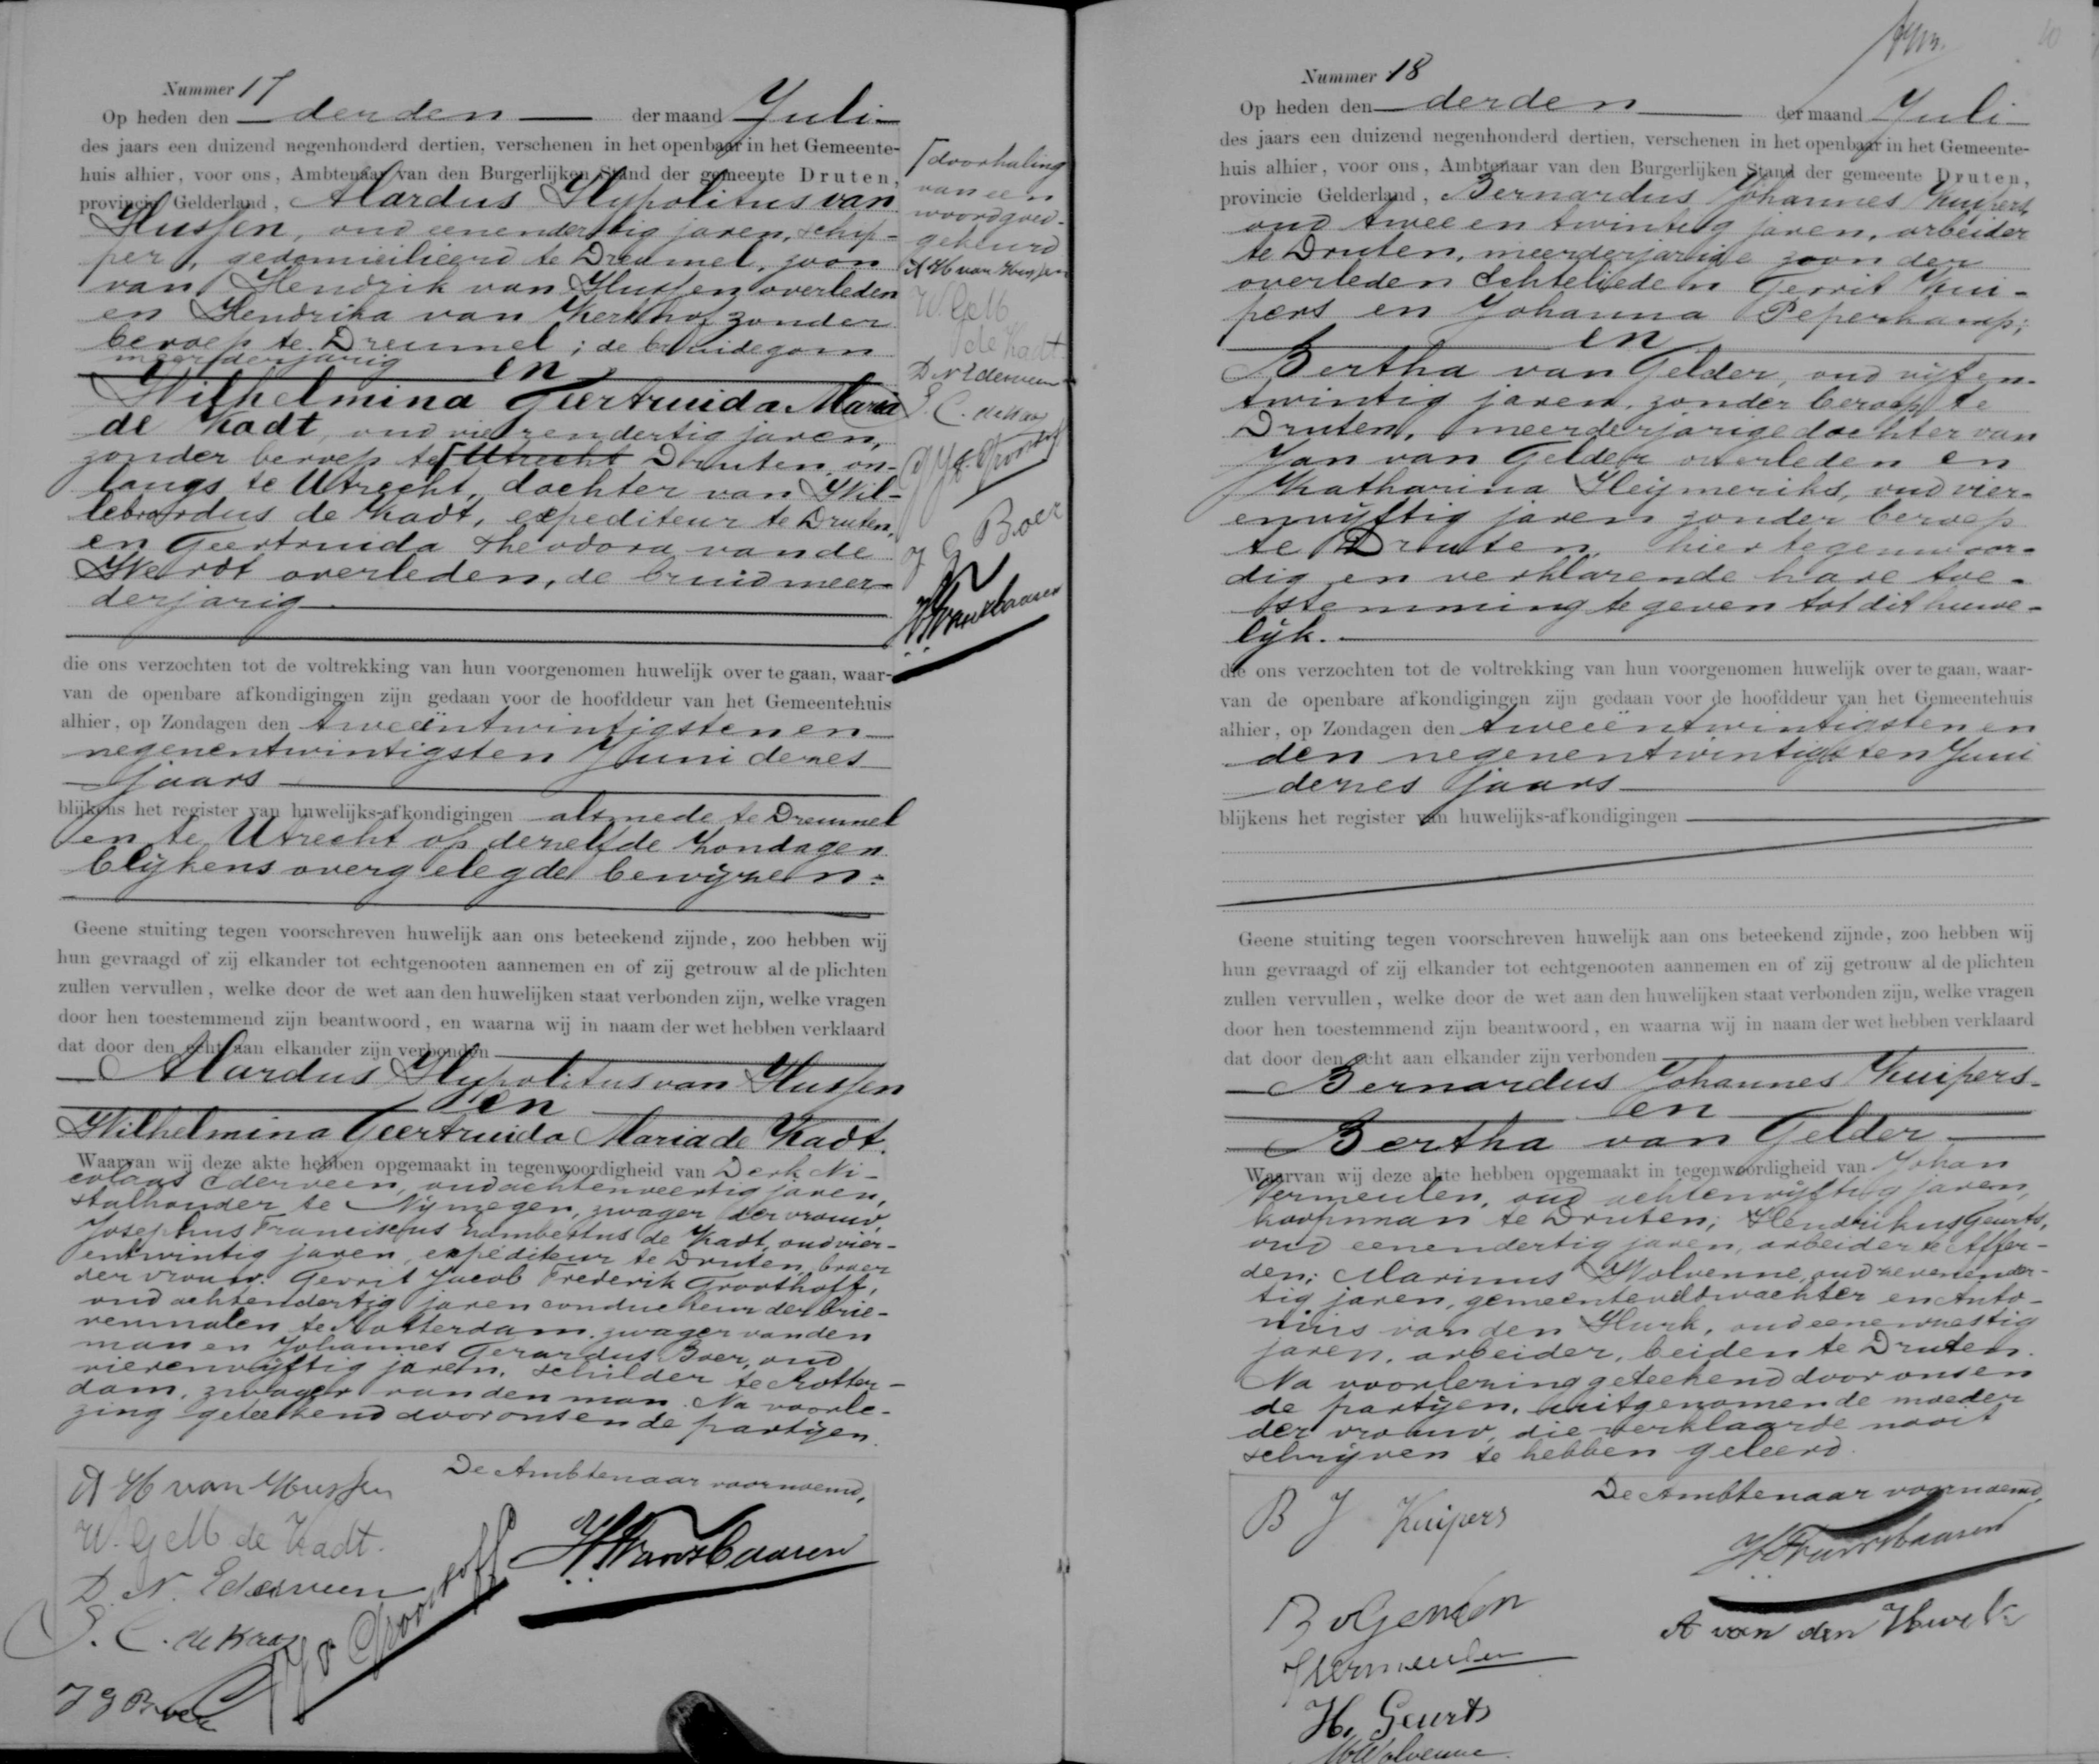 Nummer 17
Op heden den derden der maand Juli
des jaars een duizend negenhonderd dertien, verschenen in het openbaar in het Gemeente-
huis alhier, voor ons, Ambtenaar van den Burgerlijken Stand der gemeente Druten,
provincie Gelderland, Alardus Hypolitus van
Hussen, oud eenendertig jaren, schip-
per, gedomicilieerd te Dreumel, zoon
van Hendrik van Hussen overleden
en Hendrika van Kerkhof zonder
beroep te Dreumel; de bruidegom
meerderjarig
en
Wilhelmina Geertruida Maria
de Kadt, oud vierendertig jaren,
zonder beroep te [Utrecht Druten, on-
langs te Utrecht, dochter van Wil-
lebrordus de Kadt, expediteur te Druten,
en Geertruida Theodora van de
Weerdt overleden, de bruid meer-
derjarig
die ons verzochten tot de voltrekking van hun voorgenomen huwelijk over te gaan, waar-
van de openbare afkondigingen zijn gedaan voor de hoofddeur van het Gemeentehuis
alhier, op Zondagen den tweeëntwintigsten en
negenentwintigsten Juni dezes
jaars
blijkens het register van huwelijks-afkondigingen alsmede te Dreumel
en te Utrecht op dezelfde Zondagen
blijkens overgelegde bewijzen.
Geene stuiting tegen voorschreven huwelijk aan ons beteekend zijnde, zoo hebben wij
hun gevraagd of zij elkander tot echtgenooten aannemen en of zij getrouw al de plichten
zullen vervullen, welke door de wet aan den huwelijken staat verbonden zijn, welke vragen
door hen toestemmend zijn beantwoord, en waarna wij in naam der wet hebben verklaard
dat door den echt aan elkander zijn verbonden
Alardus Hypolitus van Hussen
en
Wilhelmina Geertruida Maria de Kadt.
Waarvan wij deze akte hebben opgemaakt in tegenwoordigheid van Derk Ni-
colaas Ederveen, oud achtenveertig jaren,
stalhouder te Nijmegen, zwager der vrouw,
Josephus Franciscus Lambertus de Kadt, oud vier-
entwintig jaren, expediteur te Druten, broer
der vrouw. Gerrit Jacob Frederik Groothoff,
oud achtendertig jaren conducteur der brie-
venmalen te Rotterdam, zwager van den
man en Johannes Gerardus Boer, oud
vierenvijftig jaren, schilder te Rotter-
dam, zwager van den man. Na voorle-
zing geteekend door ons en de partijen.
De Ambtenaar voornoemd,
A H van Hussen
W. G M de Kadt.
D. N. Ederveen
Groothoff
J G Boer
[doorhaling
van een
woord goed-
gekeurd
A H van Hussen
W G M
de Kadt.
D. N Ederveen
J G Boer
Nummer 18
Op heden den derden der maand Juli
des jaars een duizend negenhonderd dertien, verschenen in het openbaar in het Gemeente-
huis alhier, voor ons, Ambtenaar van den Burgerlijken Stand der gemeente Druten,
provincie Gelderland, Bernardus Johannes Kuipers,
oud twee en twintig jaren, arbeider
te Druten, meerderjarige zoon der
overleden Echtelieden Gerrit Kui-
pers en Johanna Peperkamp;
en
Bertha van Gelder, oud vijfen-
twintig jaren, zonder beroep te
Druten, meerderjarige dochter van
Jan van Gelder overleden en
Katharina Heijmeriks, oud vier-
envijftig jaren zonder beroep
te Druten, hier tegenwoor-
dig en verklarende hare toe-
stemming te geven tot dit huwe-
lijk.
die ons verzochten tot de voltrekking van hun voorgenomen huwelijk over te gaan, waar-
van de openbare afkondigingen zijn gedaan voor de hoofddeur van het Gemeentehuis
alhier, op Zondagen den tweeëntwintigsten en
den negenentwintigsten Juni
dezes jaars
blijkens het register van huwelijks-afkondigingen
Geene stuiting tegen voorschreven huwelijk aan ons beteekend zijnde, zoo hebben wij
hun gevraagd of zij elkander tot echtgenooten aannemen en of zij getrouw al de plichten
zullen vervullen, welke door de wet aan den huwelijken staat verbonden zijn, welke vragen
door hen toestemmend zijn beantwoord, en waarna wij in naam der wet hebben verklaard
dat door den echt aan elkander zijn verbonden
Bernardus Johannes Kuipers
en
Bertha van Gelder
Waarvan wij deze akte hebben opgemaakt in tegenwoordigheid van Johan
Vermeulen, oud achtenvijftig jaren,
koopman te Druten; Hendrikus Geurts,
oud eenendertig jaren, arbeider te Affer-
den; Marinus Wolvenne, oud zevenender-
tig jaren, gemeenteveldwachter en Anto-
nius van den Hurk, oud eenenzestig
jaren, arbeider, beiden te Druten.
Na voorlezing geteekend door ons en
de partijen, uitgenomen de moeder
der vrouw, die verklaarde nooit
schrijven te hebben geleerd.
De Ambtenaar voornoemd,
B J Kuipers
B v Gelder
J Vermeulen
A van den Hurk
H. Geurts
M Wolvenne